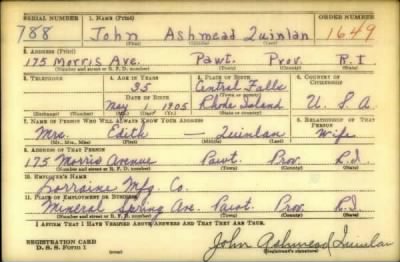 SERIAL NUMBER 1. NAME (Print) ORDER NUMBER
788 John Ashmead Quinlan 1649
(First) (Middle) (Last)
2. ADDRESS (Print)
175 Morris Ave. Pawt. Prov. R.I.
(Number and street or R. F. D. number) (Town) (County) (State)
3. TELEPHONE 4. AGE IN YEARS 5. PLACE OF BIRTH 6. COUNTRY OF CITIZENSHIP
35 Central Falls
(Town or county)
DATE OF BIRTH
May 1 1905 Rhode Island U.S.A.
(Exchange) (Number) (Mo.) (Day) (Yr.) (State or country)
7. NAME OF PERSON WHO WILL ALWAYS KNOW YOUR ADDRESS RELATIONSHIP OF THAT PERSON
Mrs. Edith — Quinlan Wife
(Mr., Mrs., Miss) (First) (Middle) (Last)
8. ADDRESS OF THAT PERSON
175 Morris Avenue Pawt. Prov. R.I.
(Number and street or R. F. D. number) (Town) (County) (State)
10. EMPLOYER'S NAME
Lorraine Mfg. Co.
11. PLACE OF EMPLOYMENT OR BUSINESS
Mineral Spring Ave. Pawt. Prov. R.I.
(Number and street or R. F. D. number) (Town) (County) (State)
I AFFIRM THAT I HAVE VERIFIED ABOVE ANSWERS AND THAT THEY ARE TRUE.
REGISTRATION CARD
D. S. S. Form 1 John Ashmead Quinlan
(Registrant's signature)